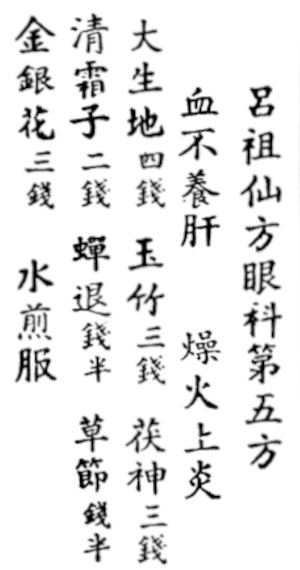 呂祖仙方眼科第五方
血不養肝 燥火上炎
大生地四錢 玉竹三錢 茯神三錢
清霜子二錢 蟬退錢半 草節錢半
金銀花三錢 水煎服